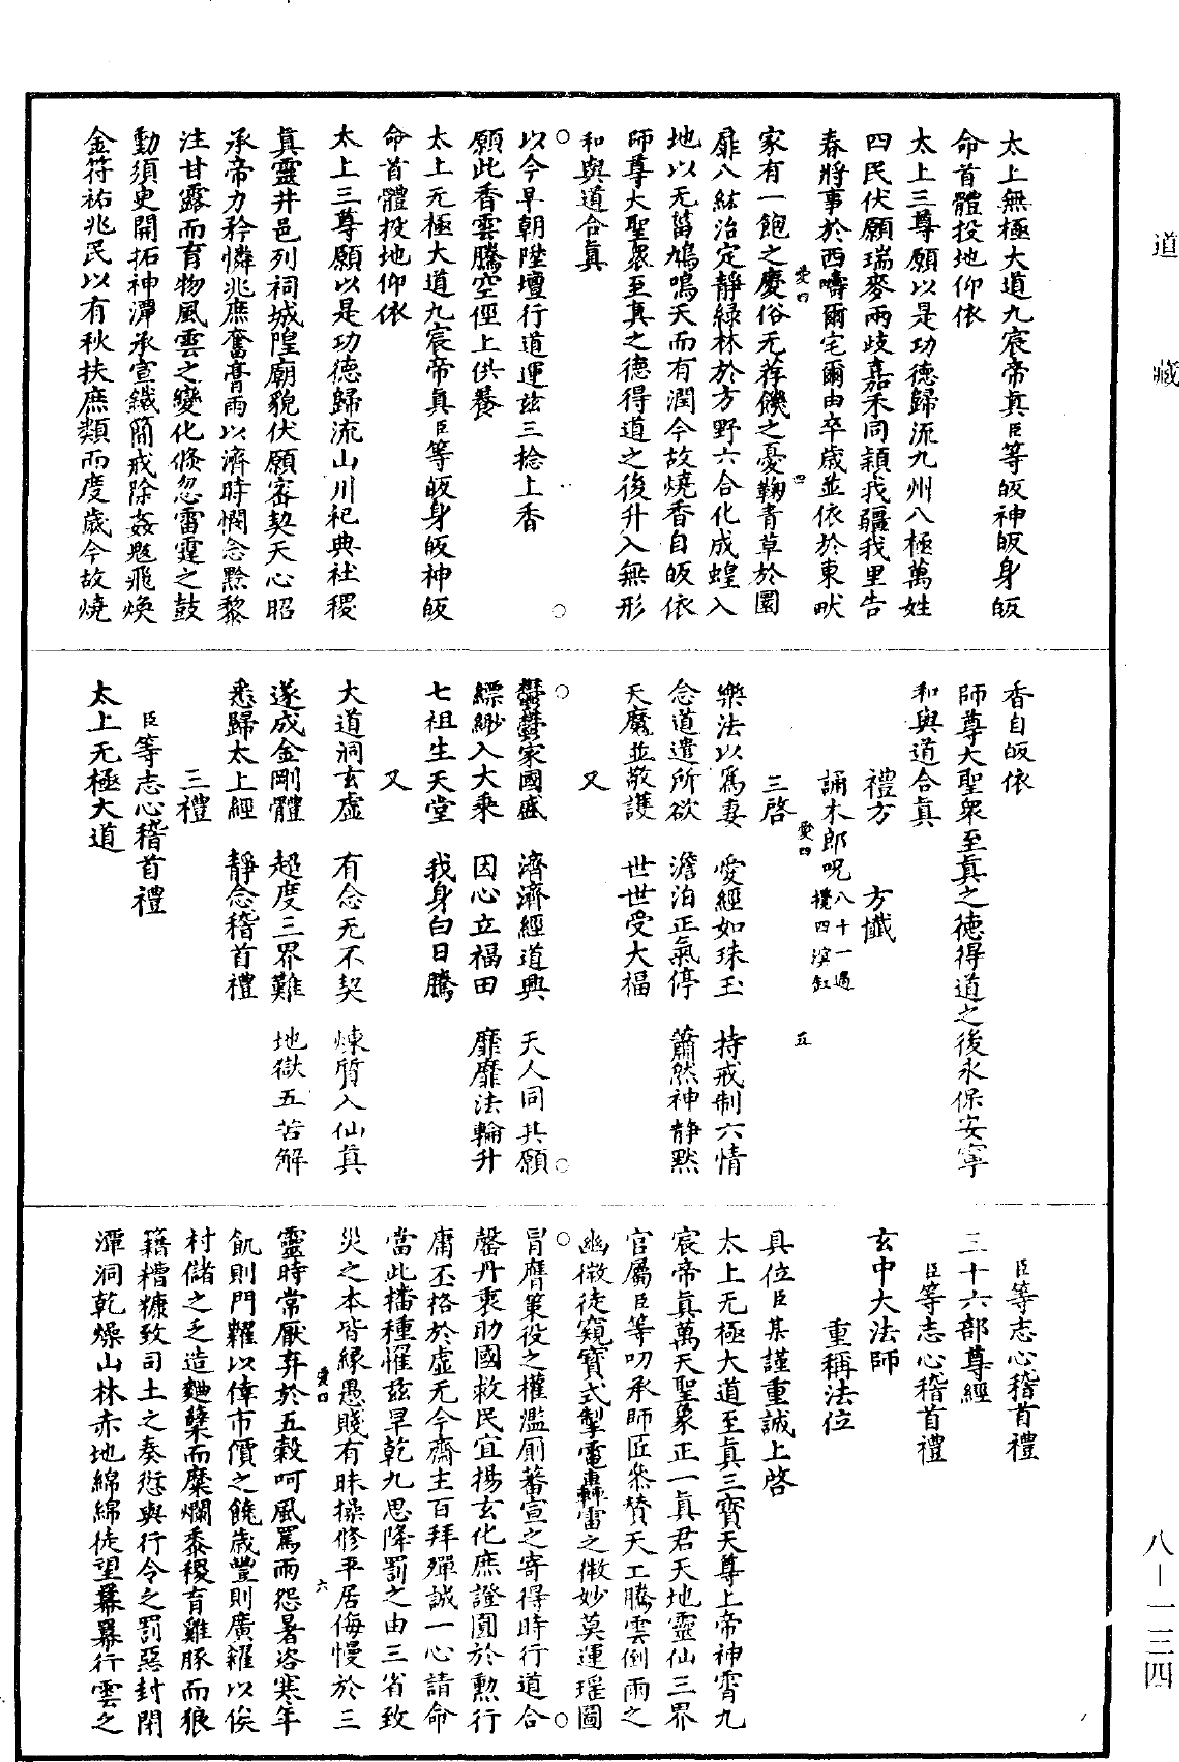 道藏
太上無極大道九宸帝真臣等皈神皈身皈
命首體投地仰依
太上三尊願以是功德歸流九州八極萬姓
四民伏願瑞麥兩歧嘉禾同穎我疆我里告
春將事於西疇爾宅爾田卒歲並依於東畎
家有一飽之慶俗无荐饑之憂鞠青草於圜
扉八紘治定靜綠林於方野六合化成蝗入
地以无菑鳩鳴天而有潤今故燒香自皈依
師尊大聖衆至真之德得道之後升入無形
和與道合真
以今早朝陞壇行道運茲三捻上香
願此香雲騰空徑上供養
太上无極大道九宸帝真臣等皈身皈神皈
命首體投地仰依
太上三尊願以是功德歸流山川祀典社稷
真靈井邑列祠城隍廟貌伏願密契天心昭
承帝力矜憐兆庶奮膏雨以濟時憫念黔黎
注甘露而育物風雲之變化倐忽雷霆之鼓
動須臾開拓神潭承宣鐵簡戒除姦慝飛煥
金符祐兆民以有秋扶庶類而度歲今故燒
愛四
四
香自皈依
師尊大聖衆至真之德得道之後永保安寧
和與道合真
禮方 方懺
誦木郎呪八十一過攪四溟缸
三啓
樂法以爲妻 愛經如珠玉 持戒制六情
念道遣所欲 澹泊正氣停 蕭然神靜黙
天魔並敬護 世世受大福
又
鬱鬱家國盛 濟濟經道興 天人同其願
縹緲入大乘 因心立福田 靡靡法輪升
七祖生天堂 我身白日騰
又
大道洞玄虛 有念无不契 煉質入仙真
遂成金剛體 超度三界難 地獄五苦解
悉歸太上經 靜念稽首禮
三禮
臣等志心稽首禮
太上无極大道
愛四
五
臣等志心稽首禮
三十六部尊經
臣等志心稽首禮
玄中大法師
重稱法位
具位臣某謹重誠上啓
太上无極大道至真三寳天尊上帝神霄九
宸帝真萬天聖象正一真君天地靈仙三界
官屬臣等叨承師匠叅賛天工騰雲倒雨之
幽微徒窺寳式掣電轟雷之微妙莫運瑶圖
冒膺策役之權濫厠蕃宣之寄得時行道合
罄丹衷助國救民宜揚玄化庶證圓於勲行
庸丕格於虛无今齋主百拜殫誠一心請命
當此播種罹茲旱乾九思降罰之由三省致
災之本皆緣愚賤有昧操修平居侮慢於三
靈時常厭弃於五穀呵風罵雨怨暑咨寒年
飢則門糶以倖市價之饒歲豐則廣糴以俟
村儲之乏造麯糵而糜爛黍稷育雞豚而狼
籍糟糠致司土之奏愆與行令之罰惡封閉
潭洞乾燥山林赤地綿綿徒望冪冪行雲之
愛四
六
八—一三四